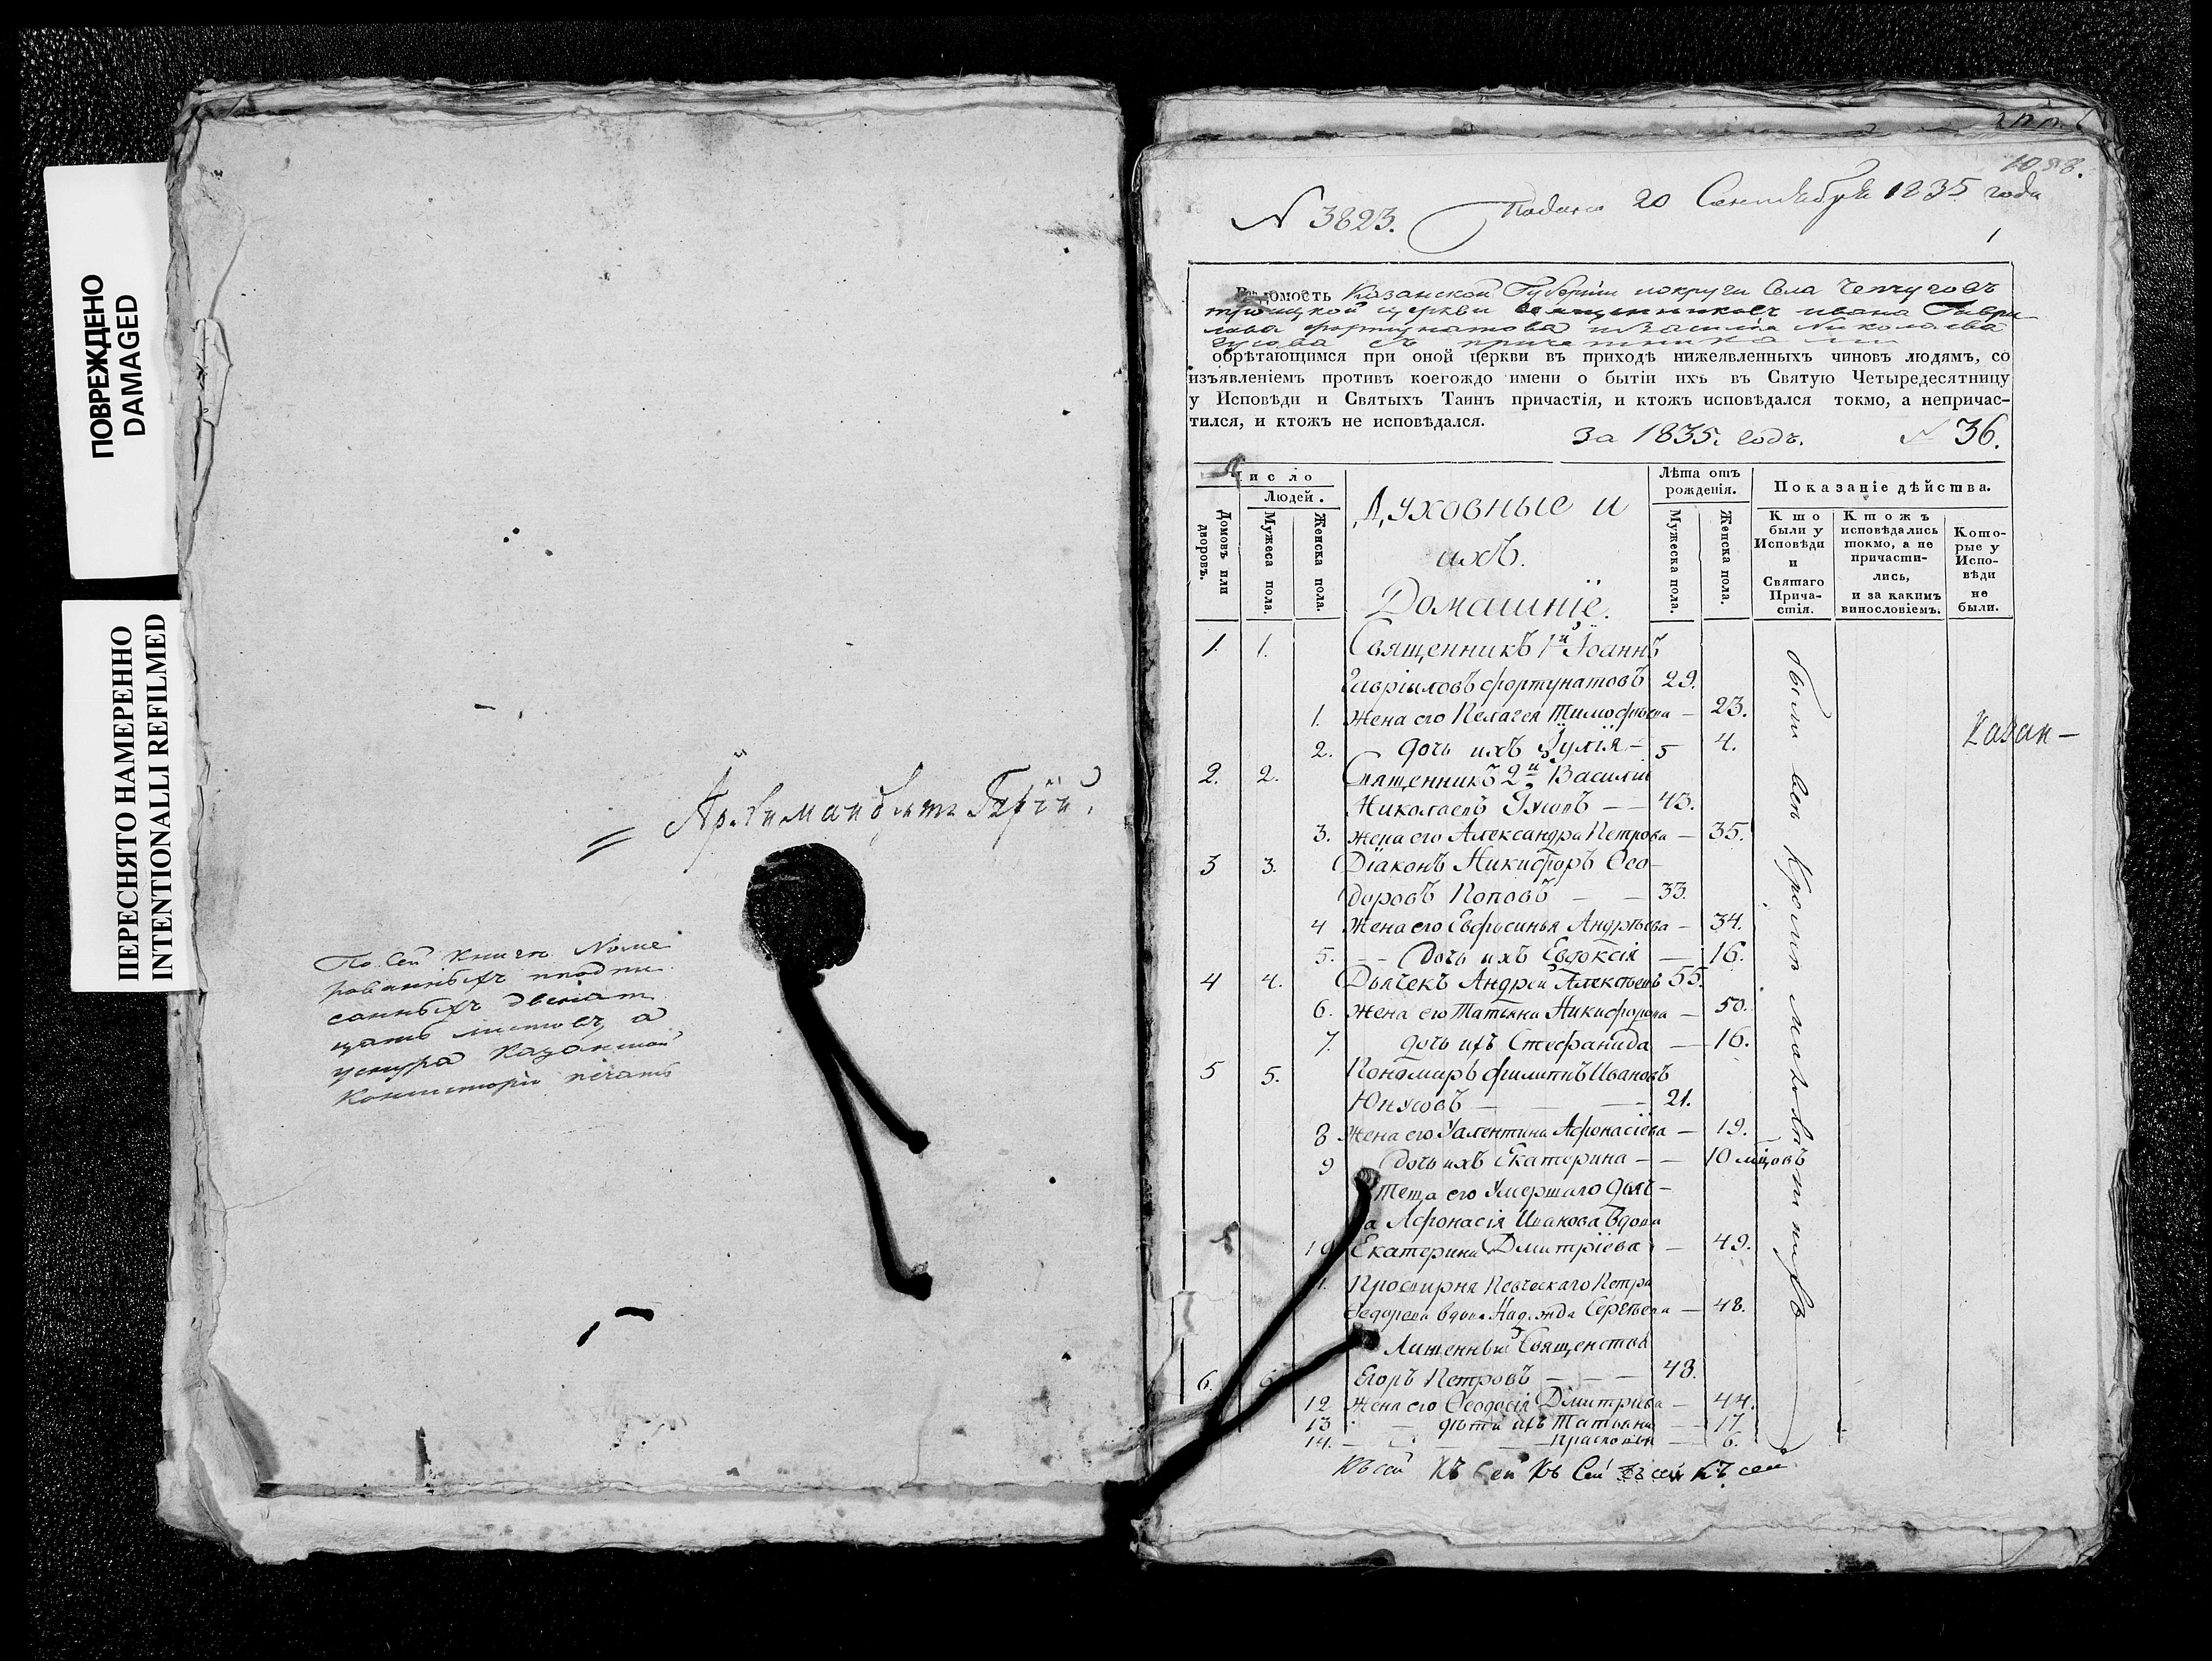 ПОВРЕЖДЕНО
DAMAGED
ПЕРЕСНЯТО НАМЕРЕННО
INTENTIONALLI REFILMED
По сей книге Номе
рованныхъ и подпи
санныхъ
листовъ, а
Казанской
Консисторіи печать
1838.
N 3823. Подано 20 Сентября 1835 года
1
Вѣдомость Казанской Губерніи округи Села Чепчуговъ
троицкой церкви Священниковъ ивана Гаври
лова фортунатова и Василія Николаева
съ причетниками
обрѣтающимся при оной церкви въ приходѣ нижеявленныхъ чиновъ людямъ, со
изъявленіемъ противъ коегождо имени о бытіи ихъ въ Святую Четыредесятницу
у Исповѣди и Святыхъ Таинъ причастія, и ктожъ исповѣдался токмо, а непричас-
тился, и ктожъ не исповѣдался.
За 1835. годъ. N 36.
Число
Людей.
Домовъ или дворовъ.
Мужеса пола.
Женска пола.
Духовные и
ихъ.
Домашніе.
Лѣта отъ
рожденія.
Мужеска пола.
Женска пола.
Показаніе дѣйства.
Кто
были у
Исповѣди
и
Святаго
Прича-
стія.
Ктожъ
исповѣдались
токмо, а не
причасти-
лись,
и за какимъ
винословіемъ.
Кото-
рые у
Испо-
вѣди
не
были.
1. 1. Священникъ 1й Іоаннъ
Гавріиловъ фортунатовъ 29.
1. Жена его Пелагея Тимофѣева — 23.
2. дочь ихъ Іулія — 5 4.
2. 2. Священникъ 2й Василій
Николаевъ — — 43.
3. Жена его Александра Петрова — 35.
3 3. Діаконъ Никифоръ Ѳео-
доровъ Поповъ — — 33.
4 Жена его Евфросинья Андрѣева — 34.
5. — — Дочь ихъ Евдоксія — 16.
4 4. Дьячекъ Андрей Алексѣевъ 55.
6. Жена его Татьяна Никифорова — 50.
7. дочь ихъ Стефанида — 16.
5 5. Пономарь филиппъ Ивановъ
Юнусовъ — — — 21.
8 Жена его Валентина Афонасіева — 19.
9 Дочь ихъ Екатерина — — 10 мцовъ
Теща его Умершаго дьяч-
а Афонасія Иванова Вдова
10 Екатерина Дмитріева — 49.
11. Просвирня Певческаго Петра
Федорова вдова Надежда Сергѣева — 48.
Лишенный Священства
6. 6. Егоръ Петровъ — — — 48.
12 Жена его Ѳеодосія Дмитріева — 44.
13 — дѣти ихъ Татьяна — 17
14. — — Прасковья — 6.
были всѣ Кромѣ
Казан—
Къ сей Къ Сей Къ Сей Къ сей Къ сей